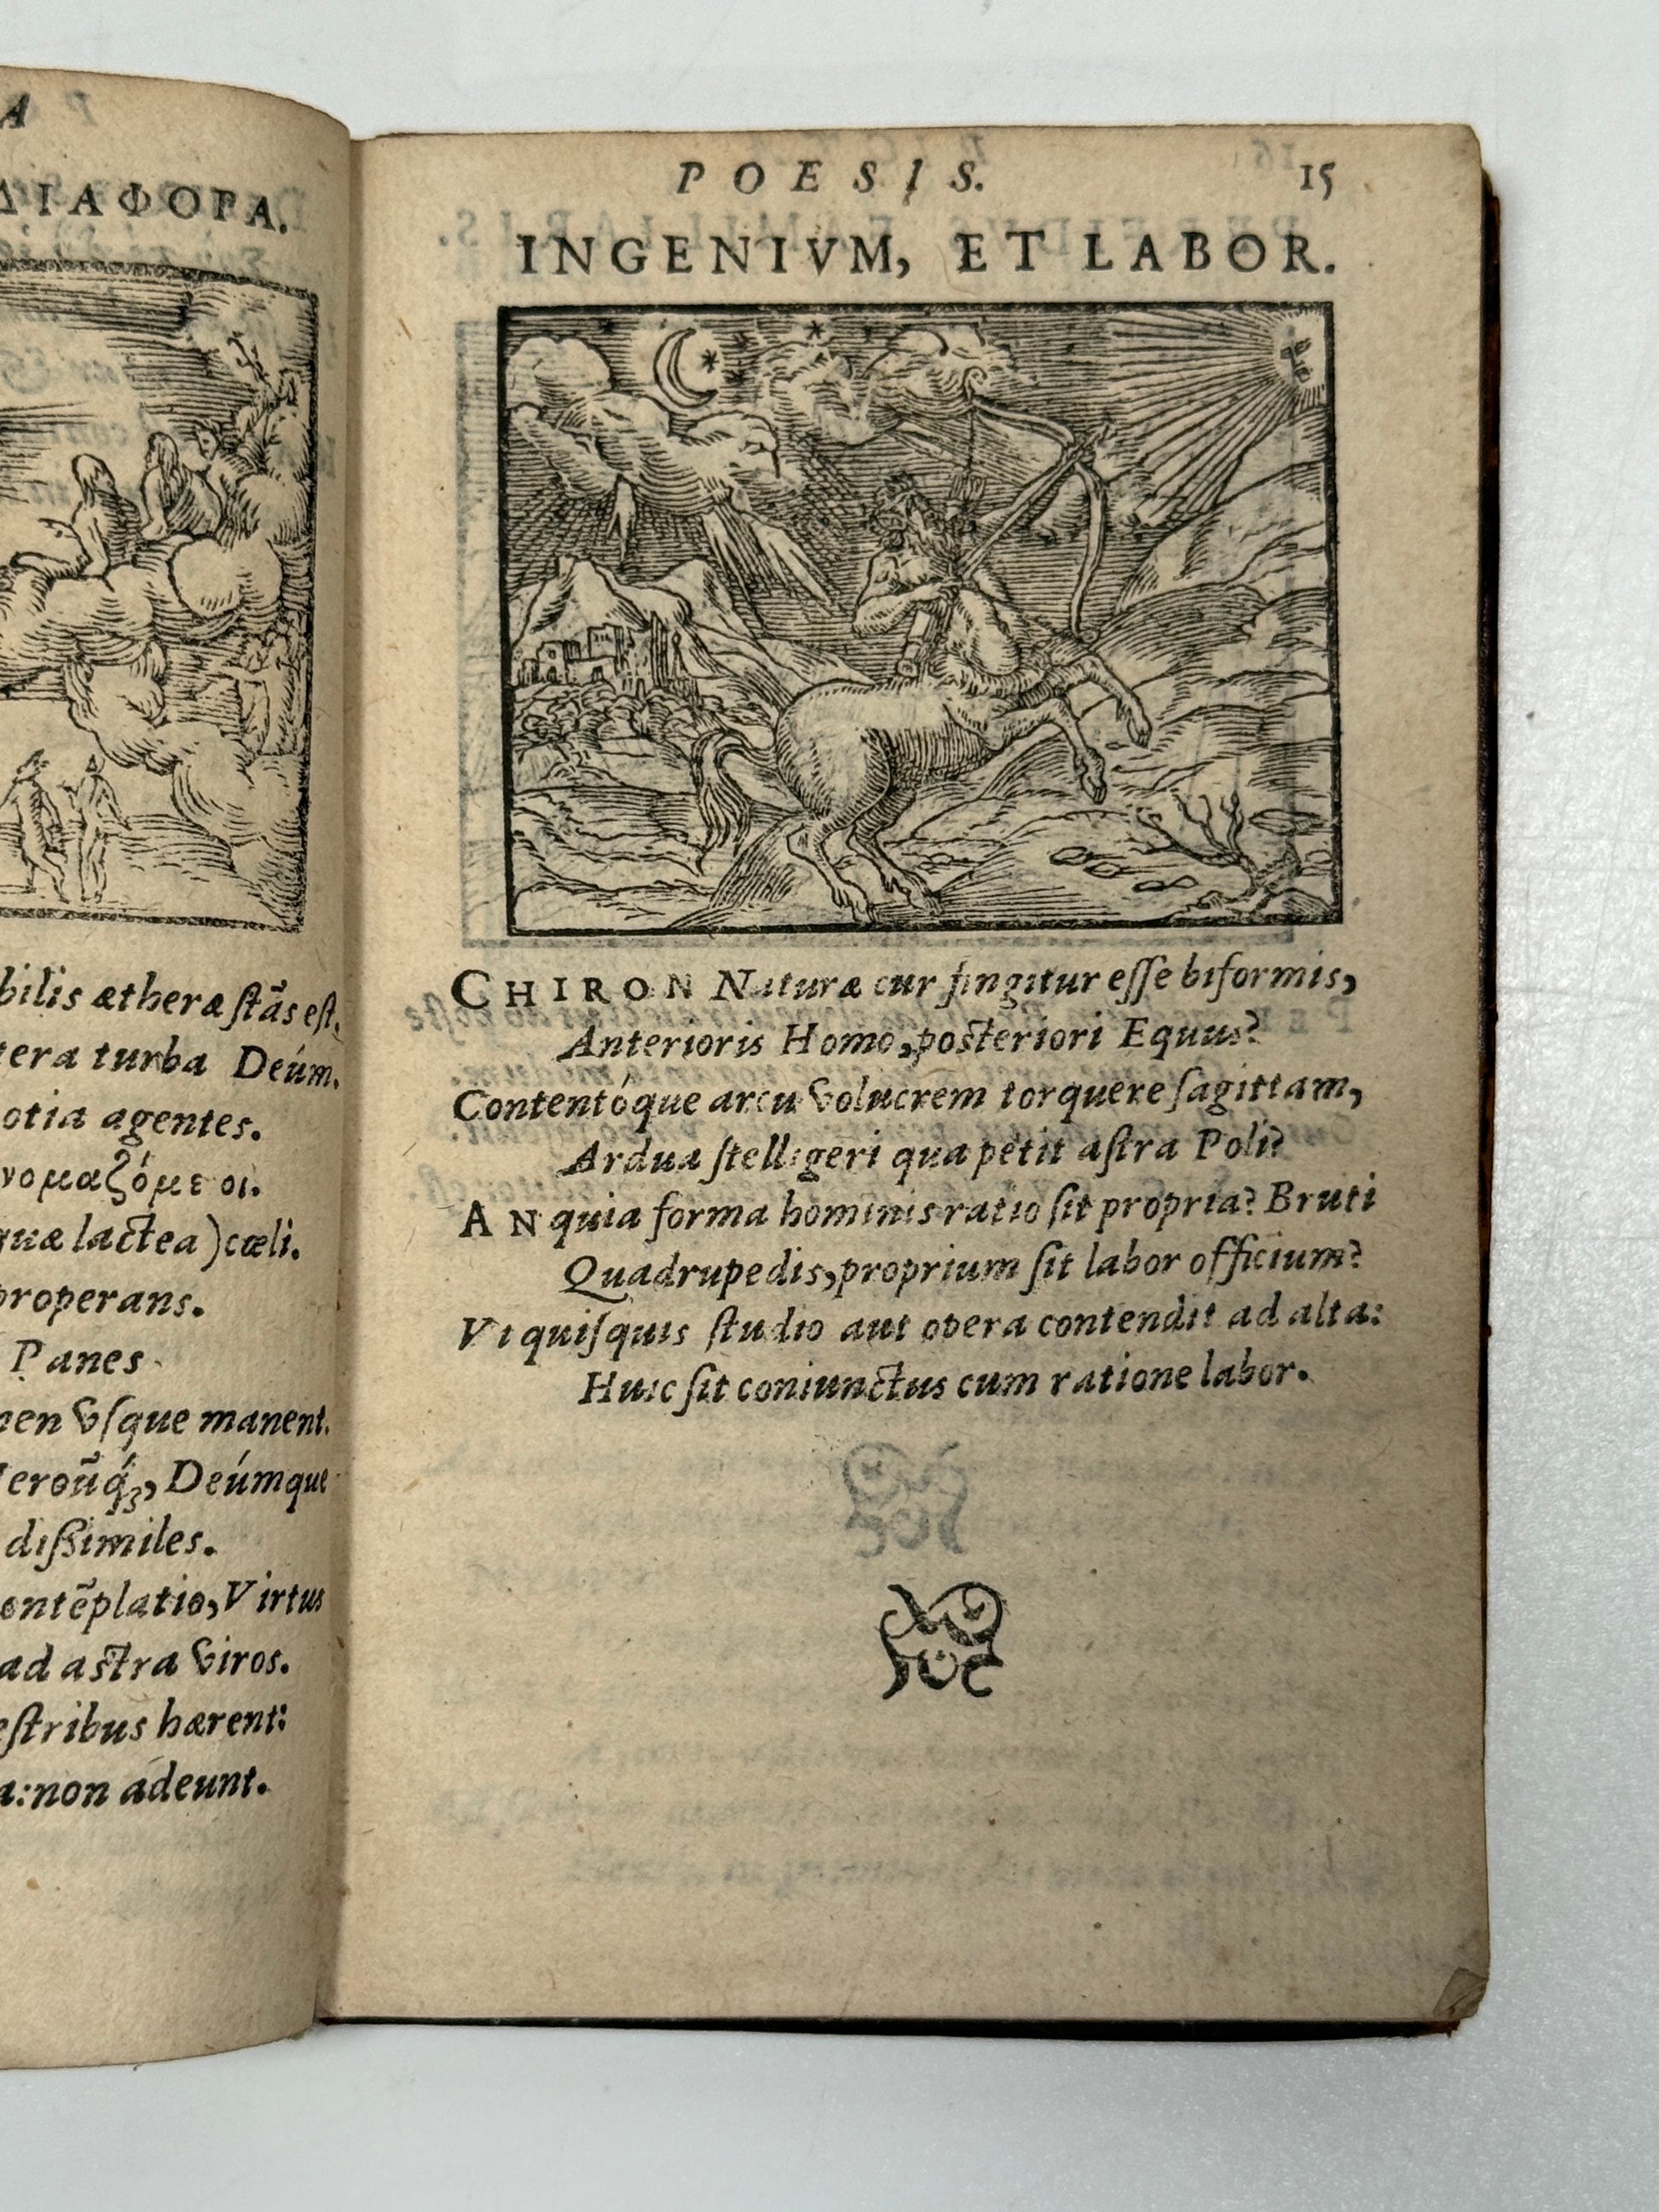 A
ΔΙΑΦΟΡΑ.
bilis ætheræ ſtās eſt,
tera turba Deúm,
otia agentes.
νομαζόμε οι.
quæ lactea) cœli.
properans.
Panes
men vſque manent.
Heroūq́;, Deúmque
diſsimiles.
ontẽplatio, Virtus
ad astra viros.
eſtribus hærent:
a: non adeunt.
POESIS. 15
INGENIVM, ET LABOR.
CHIRON Naturæ cur fingitur eſſe biformis,
Anterioris Homo, poſteriori Equus?
Contentóque arcu volucrem torquere ſagittam,
Ardua ſtelligeri qua petit aſtra Poli?
AN quia forma hominis ratio ſit propria? Bruti
Quadrupedis, proprium ſit labor officium?
Vt quiſquis ſtudio aut opera contendit ad alta:
Huic ſit coniunctus cum ratione labor.